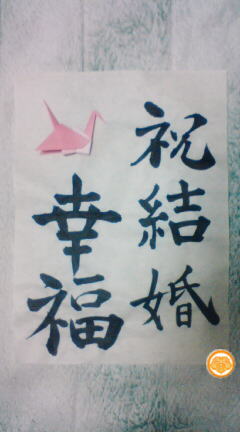 祝結婚
幸福